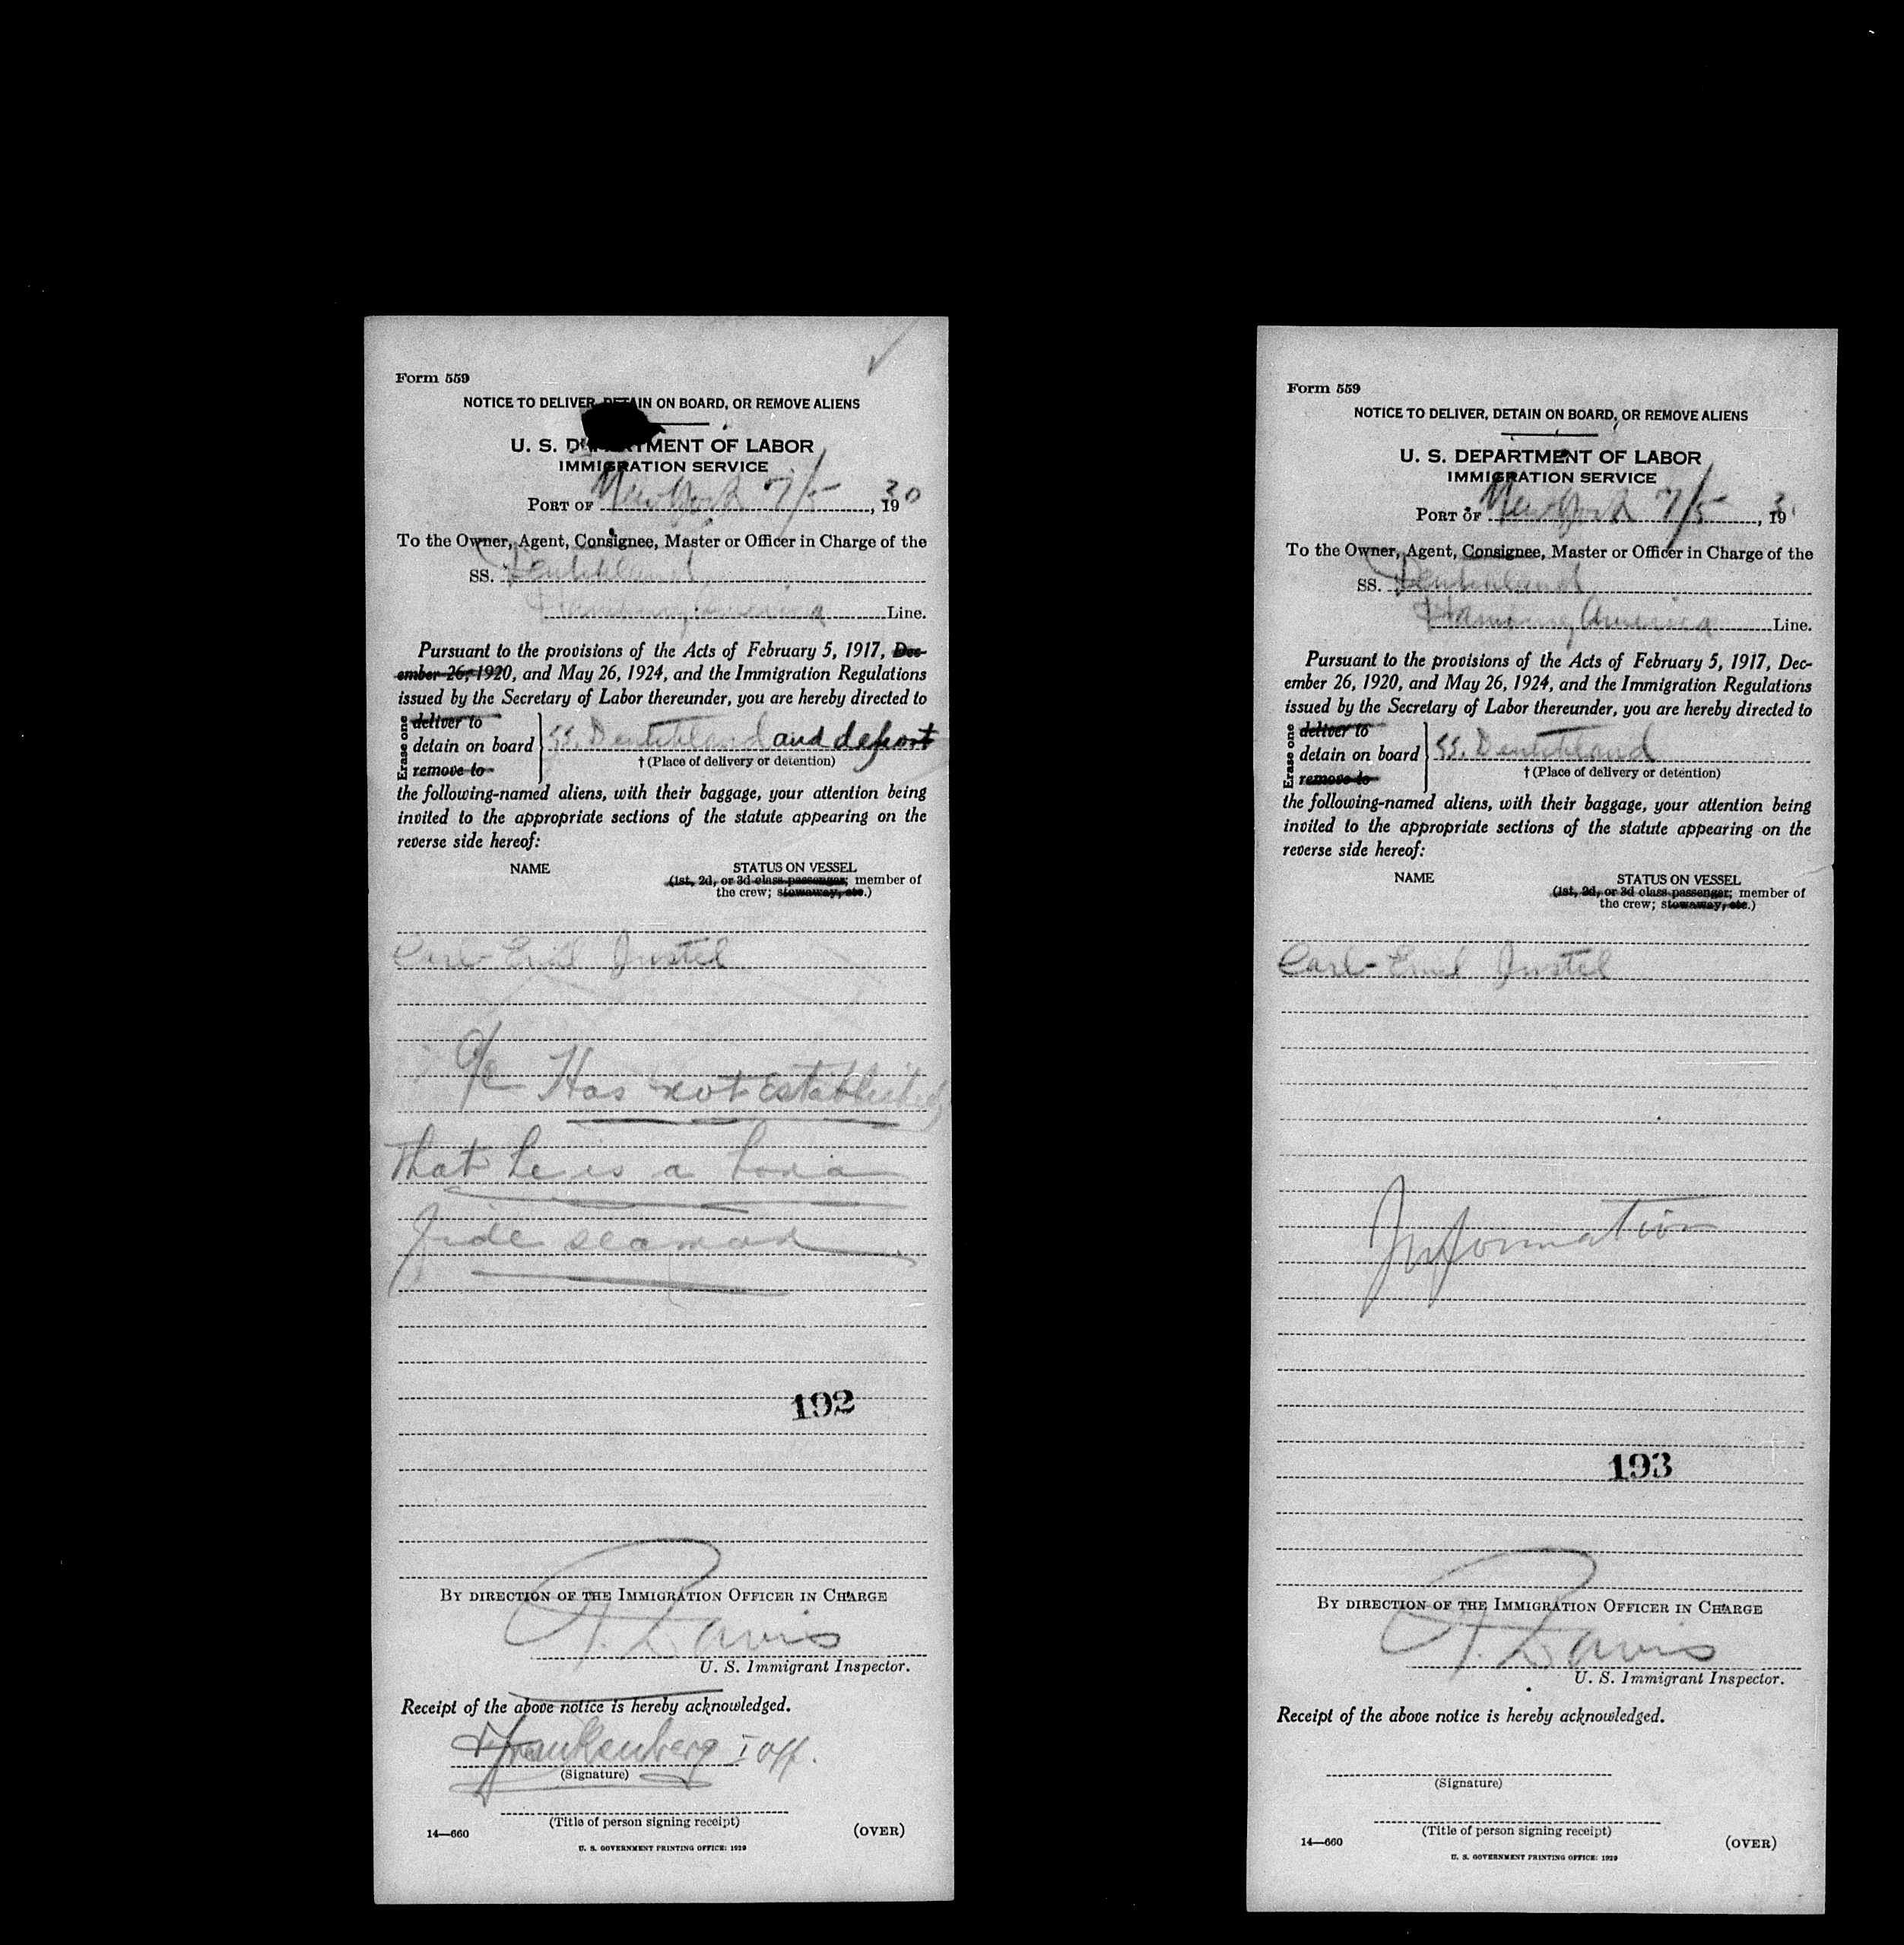 Form 559
NOTICE TO DELIVER, DETAIN ON BOARD, OR REMOVE ALIENS
U. S. DEPARTMENT OF LABOR
IMMIGRATION SERVICE
PORT OF New York 7/5, 1930
To the Owner, Agent, Consignee, Master or Officer in Charge of the
SS. Deutschland
Hamburg America Line.
Pursuant to the provisions of the Acts of February 5, 1917, Dec-
ember 26, 1920, and May 26, 1924, and the Immigration Regulations
issued by the Secretary of Labor thereunder, you are hereby directed to
Erase one
deliver to
detain on board SS. Deutschland and deport
remove to
† (Place of delivery or detention)
the following-named aliens, with their baggage, your attention being
invited to the appropriate sections of the statute appearing on the
reverse side hereof:
NAME STATUS ON VESSEL
(1st, 2d, or 3d class passenger; member of
the crew; stowaway, etc.)
Carl-Emil Justel
Has not established
that he is a bona
fide seaman
192
BY DIRECTION OF THE IMMIGRATION OFFICER IN CHARGE
Davis
U. S. Immigrant Inspector.
Receipt of the above notice is hereby acknowledged.
Frankenberg I Off.
(Signature)
(Title of person signing receipt)
14—660 (OVER)
U. S. GOVERNMENT PRINTING OFFICE: 1929
Form 559
NOTICE TO DELIVER, DETAIN ON BOARD, OR REMOVE ALIENS
U. S. DEPARTMENT OF LABOR
IMMIGRATION SERVICE
PORT OF New York 7/5, 193
To the Owner, Agent, Consignee, Master or Officer in Charge of the
SS. Deutschland
Hamburg America Line.
Pursuant to the provisions of the Acts of February 5, 1917, Dec-
ember 26, 1920, and May 26, 1924, and the Immigration Regulations
issued by the Secretary of Labor thereunder, you are hereby directed to
Erase one
deliver to
detain on board SS. Deutschland
remove to
† (Place of delivery or detention)
the following-named aliens, with their baggage, your attention being
invited to the appropriate sections of the statute appearing on the
reverse side hereof:
NAME STATUS ON VESSEL
(1st, 2d, or 3d class passenger; member of
the crew; stowaway, etc.)
Carl-Emil Justel
Information
193
BY DIRECTION OF THE IMMIGRATION OFFICER IN CHARGE
Davis
U. S. Immigrant Inspector.
Receipt of the above notice is hereby acknowledged.
(Signature)
(Title of person signing receipt)
14—660 (OVER)
U. S. GOVERNMENT PRINTING OFFICE: 1929